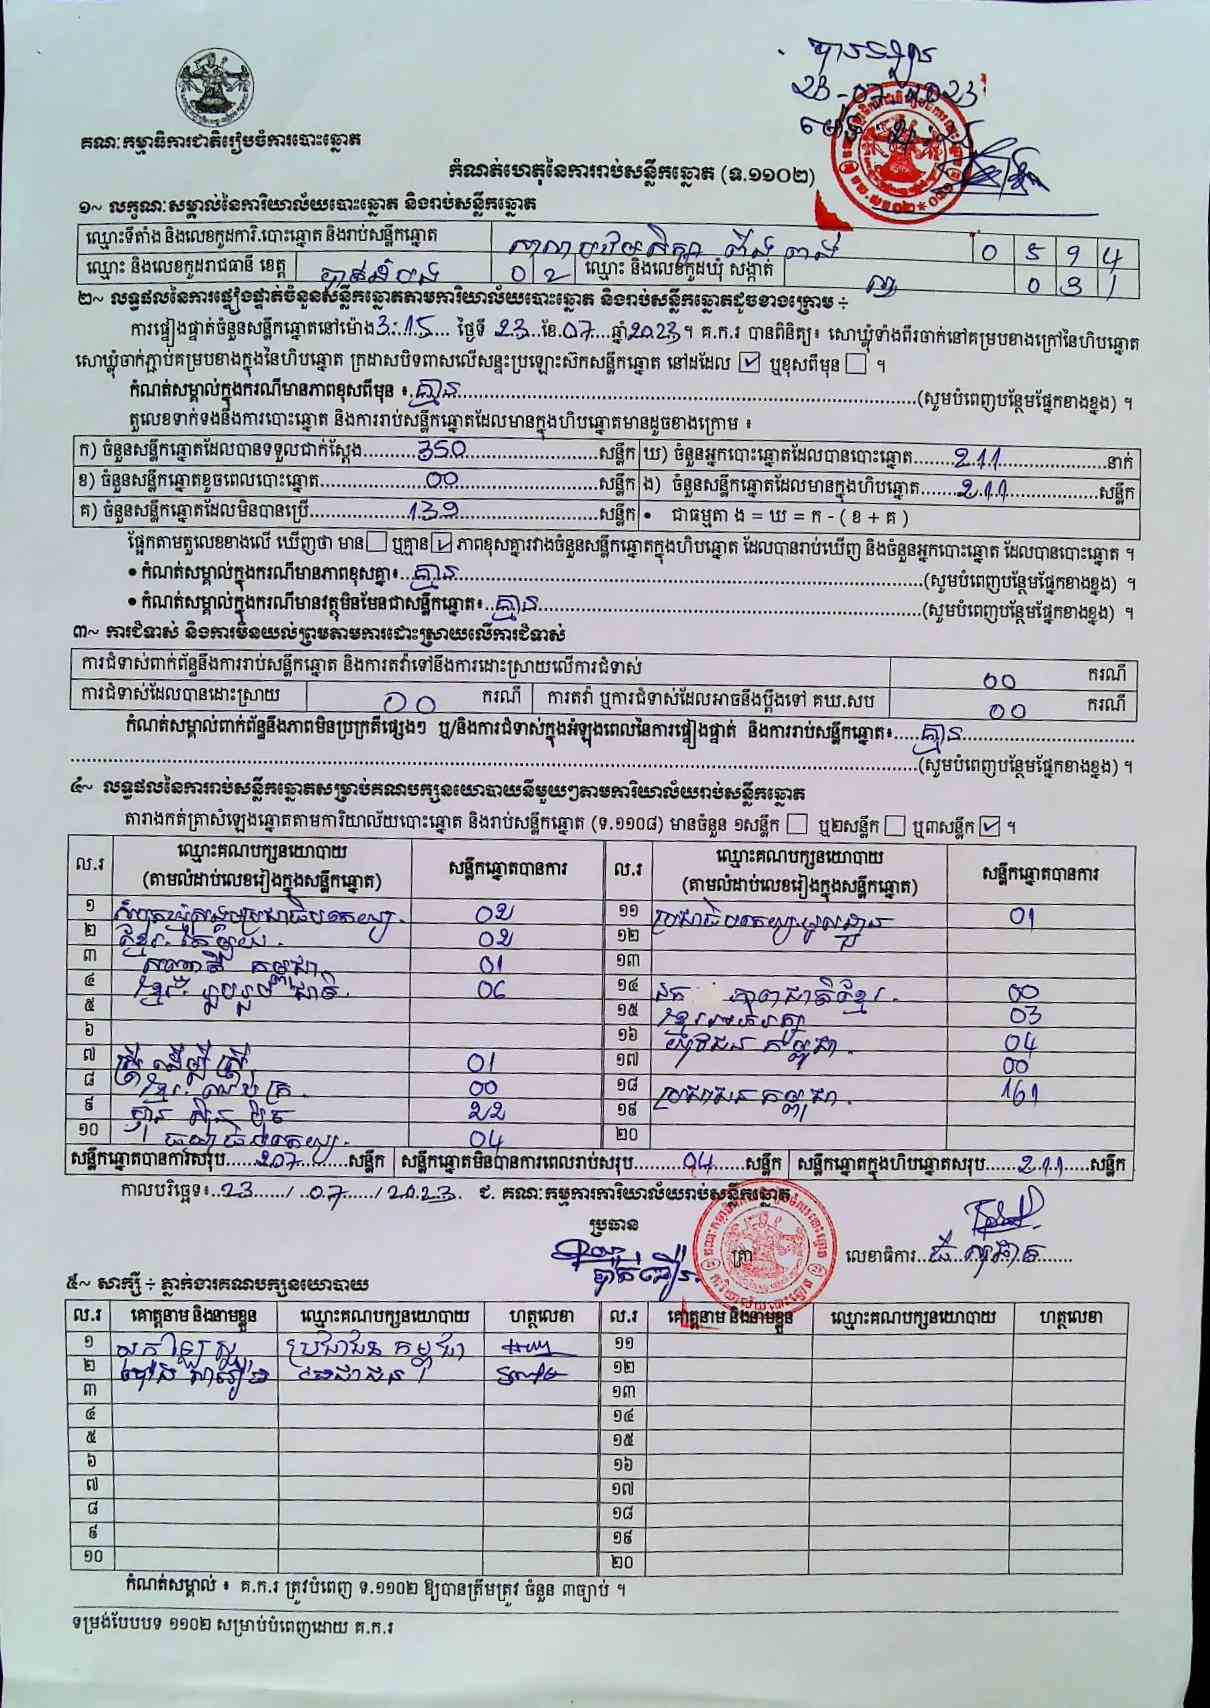 បានទទួល
23-07-2023
គណៈកម្មាធិការជាតិរៀបចំការបោះឆ្នោត
កំណត់ហេតុនៃការរាប់សន្លឹកឆ្នោត (ទ.១១០២)
១~ លក្ខណៈសម្គាល់នៃការិយាល័យបោះឆ្នោត និងរាប់សន្លឹកឆ្នោត
ឈ្មោះទីតាំង និងលេខកូដការិ.បោះឆ្នោត និងរាប់សន្លឹកឆ្នោត សាលាបឋមសិក្សា 0 5 9 4
ឈ្មោះ និងលេខកូដរាជធានី ខេត្ត បាត់ដំបង 0 2 ឈ្មោះ និងលេខកូដឃុំ សង្កាត់ 0 3 1
២~ លទ្ធផលនៃការផ្ទៀងផ្ទាត់ចំនួនសន្លឹកឆ្នោតតាមការិយាល័យបោះឆ្នោត និងរាប់សន្លឹកឆ្នោតដូចខាងក្រោម ÷
ការផ្ទៀងផ្ទាត់ចំនួនសន្លឹកឆ្នោតនៅម៉ោង 3:15 ថ្ងៃទី 23 ខែ 07 ឆ្នាំ 2023 ។ គ.ក.រ បានពិនិត្យ៖ សោឃ្លុំទាំងពីរចាក់នៅគម្របខាងក្រៅនៃហិបឆ្នោត
សោឃ្លុំចាក់ភ្ជាប់គម្របខាងក្នុងនៃហិបឆ្នោត ក្រដាសបិទពាសលើសន្ទះប្រឡោះស៊កសន្លឹកឆ្នោត នៅដដែល ☑ ឬខុសពីមុន ☐ ។
កំណត់សម្គាល់ក្នុងករណីមានភាពខុសពីមុន ៖ គ្មាន (សូមបំពេញបន្ថែមផ្នែកខាងខ្នង) ។
តួលេខទាក់ទងនឹងការបោះឆ្នោត និងការរាប់សន្លឹកឆ្នោតដែលមានក្នុងហិបឆ្នោតមានដូចខាងក្រោម ៖
ក) ចំនួនសន្លឹកឆ្នោតដែលបានទទួលជាក់ស្តែង 350 សន្លឹក ឃ) ចំនួនអ្នកបោះឆ្នោតដែលបានបោះឆ្នោត 211 នាក់
ខ) ចំនួនសន្លឹកឆ្នោតខូចពេលបោះឆ្នោត 00 សន្លឹក ង) ចំនួនសន្លឹកឆ្នោតដែលមានក្នុងហិបឆ្នោត 211 សន្លឹក
គ) ចំនួនសន្លឹកឆ្នោតដែលមិនបានប្រើ 139 សន្លឹក • ជាធម្មតា ង = ឃ = ក - ( ខ + គ )
ផ្អែកតាមតួលេខខាងលើ ឃើញថា មាន ☐ ឬគ្មាន ☑ ភាពខុសគ្នារវាងចំនួនសន្លឹកឆ្នោតក្នុងហិបឆ្នោត ដែលបានរាប់ឃើញ និងចំនួនអ្នកបោះឆ្នោត ដែលបានបោះឆ្នោត ។
• កំណត់សម្គាល់ក្នុងករណីមានភាពខុសគ្នា៖ គ្មាន (សូមបំពេញបន្ថែមផ្នែកខាងខ្នង) ។
• កំណត់សម្គាល់ក្នុងករណីមានវត្ថុមិនមែនជាសន្លឹកឆ្នោត៖ គ្មាន (សូមបំពេញបន្ថែមផ្នែកខាងខ្នង) ។
៣~ ការជំទាស់ និងការមិនយល់ព្រមតាមការដោះស្រាយលើការជំទាស់
ការជំទាស់ពាក់ព័ន្ធនឹងការរាប់សន្លឹកឆ្នោត និងការតវ៉ាទៅនឹងការដោះស្រាយលើការជំទាស់ 00 ករណី
ការជំទាស់ដែលបានដោះស្រាយ 00 ករណី ការតវ៉ា ឬការជំទាស់ដែលអាចនឹងប្តឹងទៅ គឃ.សប 00 ករណី
កំណត់សម្គាល់ពាក់ព័ន្ធនឹងភាពមិនប្រក្រតីផ្សេងៗ ឬ/និងការជំទាស់ក្នុងអំឡុងពេលនៃការផ្ទៀងផ្ទាត់ និងការរាប់សន្លឹកឆ្នោត៖ គ្មាន
(សូមបំពេញបន្ថែមផ្នែកខាងខ្នង) ។
៤~ លទ្ធផលនៃការរាប់សន្លឹកឆ្នោតសម្រាប់គណបក្សនយោបាយនីមួយៗតាមការិយាល័យរាប់សន្លឹកឆ្នោត
តារាងកត់ត្រាសំឡេងឆ្នោតតាមការិយាល័យបោះឆ្នោត និងរាប់សន្លឹកឆ្នោត (ទ.១១០៨) មានចំនួន ១សន្លឹក ☐ ឬ២សន្លឹក ☐ ឬ៣សន្លឹក ☑ ។
ល.រ ឈ្មោះគណបក្សនយោបាយ (តាមលំដាប់លេខរៀងក្នុងសន្លឹកឆ្នោត) សន្លឹកឆ្នោតបានការ ល.រ ឈ្មោះគណបក្សនយោបាយ (តាមលំដាប់លេខរៀងក្នុងសន្លឹកឆ្នោត) សន្លឹកឆ្នោតបានការ
១ សំបុកឃ្មុំសង្គមប្រជាធិបតេយ្យ 02 ១១ ប្រជាធិបតេយ្យមូលដ្ឋាន 01
២ ខ្មែរ 02 ១២
៣ សញ្ជាតិ កម្ពុជា 01 ១៣
៤ ខ្មែររួបរួមជាតិ 06 ១៤ ឯកភាពជាតិខ្មែរ 00
៥ ១៥ ខ្មែរអភិរក្ស 03
៦ ១៦ យុវជន កម្ពុជា 04
៧ ស្ត្រី ដើម្បី ស្ត្រី 01 ១៧ 00
៨ ខ្មែរ 00 ១៨ ប្រជាជនកម្ពុជា 161
៩ ហ្វ៊ុនស៊ិនប៉ិច 22 ១៩
១០ ធម្មាធិបតេយ្យ 04 ២០
សន្លឹកឆ្នោតបានការសរុប 207 សន្លឹក សន្លឹកឆ្នោតមិនបានការពេលរាប់សរុប 04 សន្លឹក សន្លឹកឆ្នោតក្នុងហិបឆ្នោតសរុប 211 សន្លឹក
កាលបរិច្ឆេទ៖ 23 / 07 / 2023 ជ. គណៈកម្មការការិយាល័យរាប់សន្លឹកឆ្នោត
ប្រធាន
ត្រា លេខាធិការ
៥~ សាក្សី ÷ ភ្នាក់ងារគណបក្សនយោបាយ
ល.រ គោត្តនាម និងនាមខ្លួន ឈ្មោះគណបក្សនយោបាយ ហត្ថលេខា ល.រ គោត្តនាម និងនាមខ្លួន ឈ្មោះគណបក្សនយោបាយ ហត្ថលេខា
១ ប្រជាជន កម្ពុជា ១១
២ ១២
៣ ១៣
៤ ១៤
៥ ១៥
៦ ១៦
៧ ១៧
៨ ១៨
៩ ១៩
១០ ២០
កំណត់សម្គាល់ ៖ គ.ក.រ ត្រូវបំពេញ ទ.១១០២ ឱ្យបានត្រឹមត្រូវ ចំនួន ៣ច្បាប់ ។
ទម្រង់បែបបទ ១១០២ សម្រាប់បំពេញដោយ គ.ក.រ